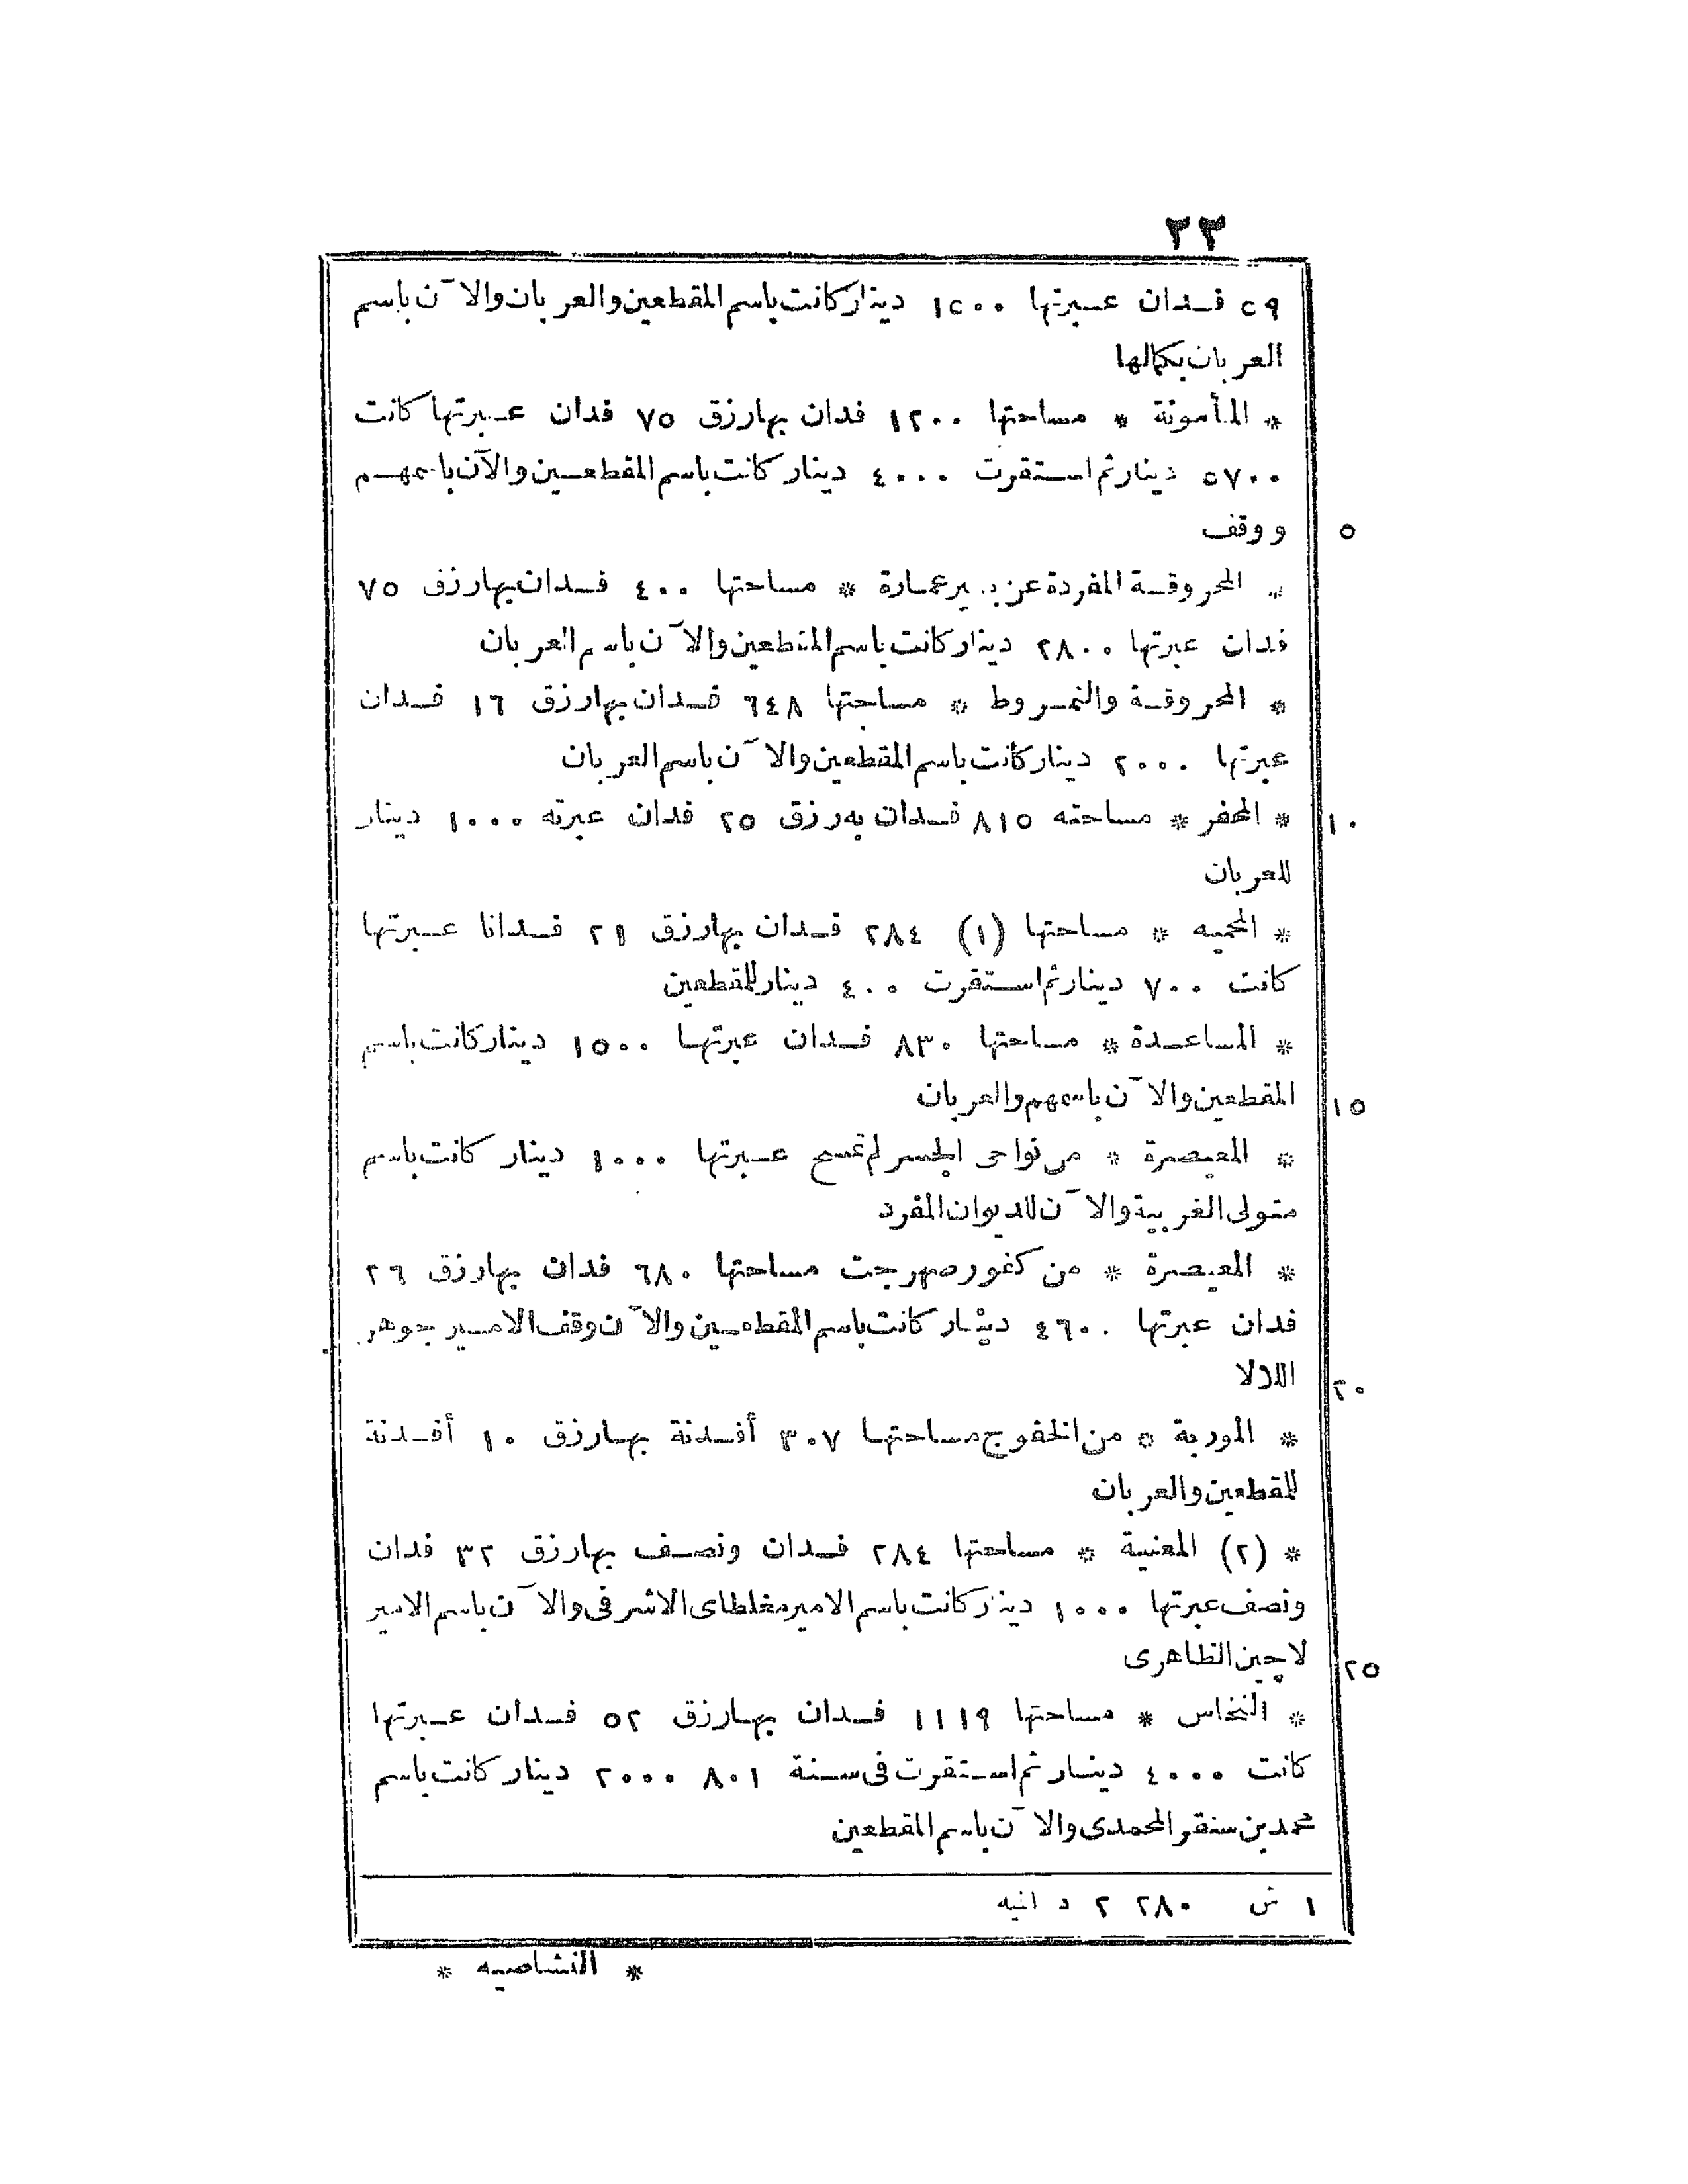 ٣٣
٢٩ فدان عبرتها ١٢٠٠ دينار كانت باسم المقطعين والعربان والآن باسم
العربان بكمالها
* المأمونة * مساحتها ١٢٠٠ فدان بها رزق ٧٥ فدان عبرتها كانت
٢٧٠٠ دينار ثم استقرت ٤٠٠٠ دينار كانت باسم المقطعين والآن باسمهم
ووقف ٥
* المحروقة المفردة عن عمارة * مساحتها ٤٠٠ فدان بها رزق ٧٥
فدان عبرتها ٢٨٠٠ دينار كانت باسم المقطعين والآن باسم العربان
* المحروقة والنمروط * مساحتها ٦٤٨ فدان بها رزق ١٦ فدان
عبرتها ٢٠٠٠ دينار كانت باسم المقطعين والآن باسم العربان
* المحفر * مساحته ٨١٥ فدان به رزق ٢٥ فدان عبرته ١٠٠٠ دينار ١٠
للعربان
* المحميه * مساحتها (١) ٢٨٤ فدان بها رزق ٢١ فدانا عبرتها
كانت ٧٠٠ دينار ثم استقرت ٤٠٠ دينار للمقطعين
* المساعدة * مساحتها ٨٣٠ فدان عبرتها ١٥٠٠ دينار كانت باسم
المقطعين والآن باسمهم والعربان ١٥
* المعيصرة * من نواحى الجسر لم تمسح عبرتها ١٠٠٠ دينار كانت باسم
متولى الغربية والآن للديوان المفرد
* المعيصرة * من كفور صهرجت مساحتها ٦٨٠ فدان بها رزق ٢٦
فدان عبرتها ٤٦٠٠ دينار كانت باسم المقطعين والآن وقف الامير جوهر
اللالا ٢٠
* الموردية * من الخفوج مساحتها ٣٠٧ أفدنة بها رزق ١٠ أفدنة
للمقطعين والعربان
* (٢) المعنية * مساحتها ٢٨٤ فدان ونصف بها رزق ٣٢ فدان
ونصف عبرتها ١٠٠٠ دينار كانت باسم الامير مغلطاى الاشرفى والآن باسم الامير
لاچين الظاهرى ٢٥
* النخاس * مساحتها ١١١٩ فدان بها رزق ٥٢ فدان عبرتها
كانت ٤٠٠٠ دينار ثم استقرت فى سنة ٨٠١ ٢٠٠٠ دينار كانت باسم
محمد بن سنقر المحمدى والآن باسم المقطعين
١ ش ٢٨٠ ٢ د
* النشاصيه *